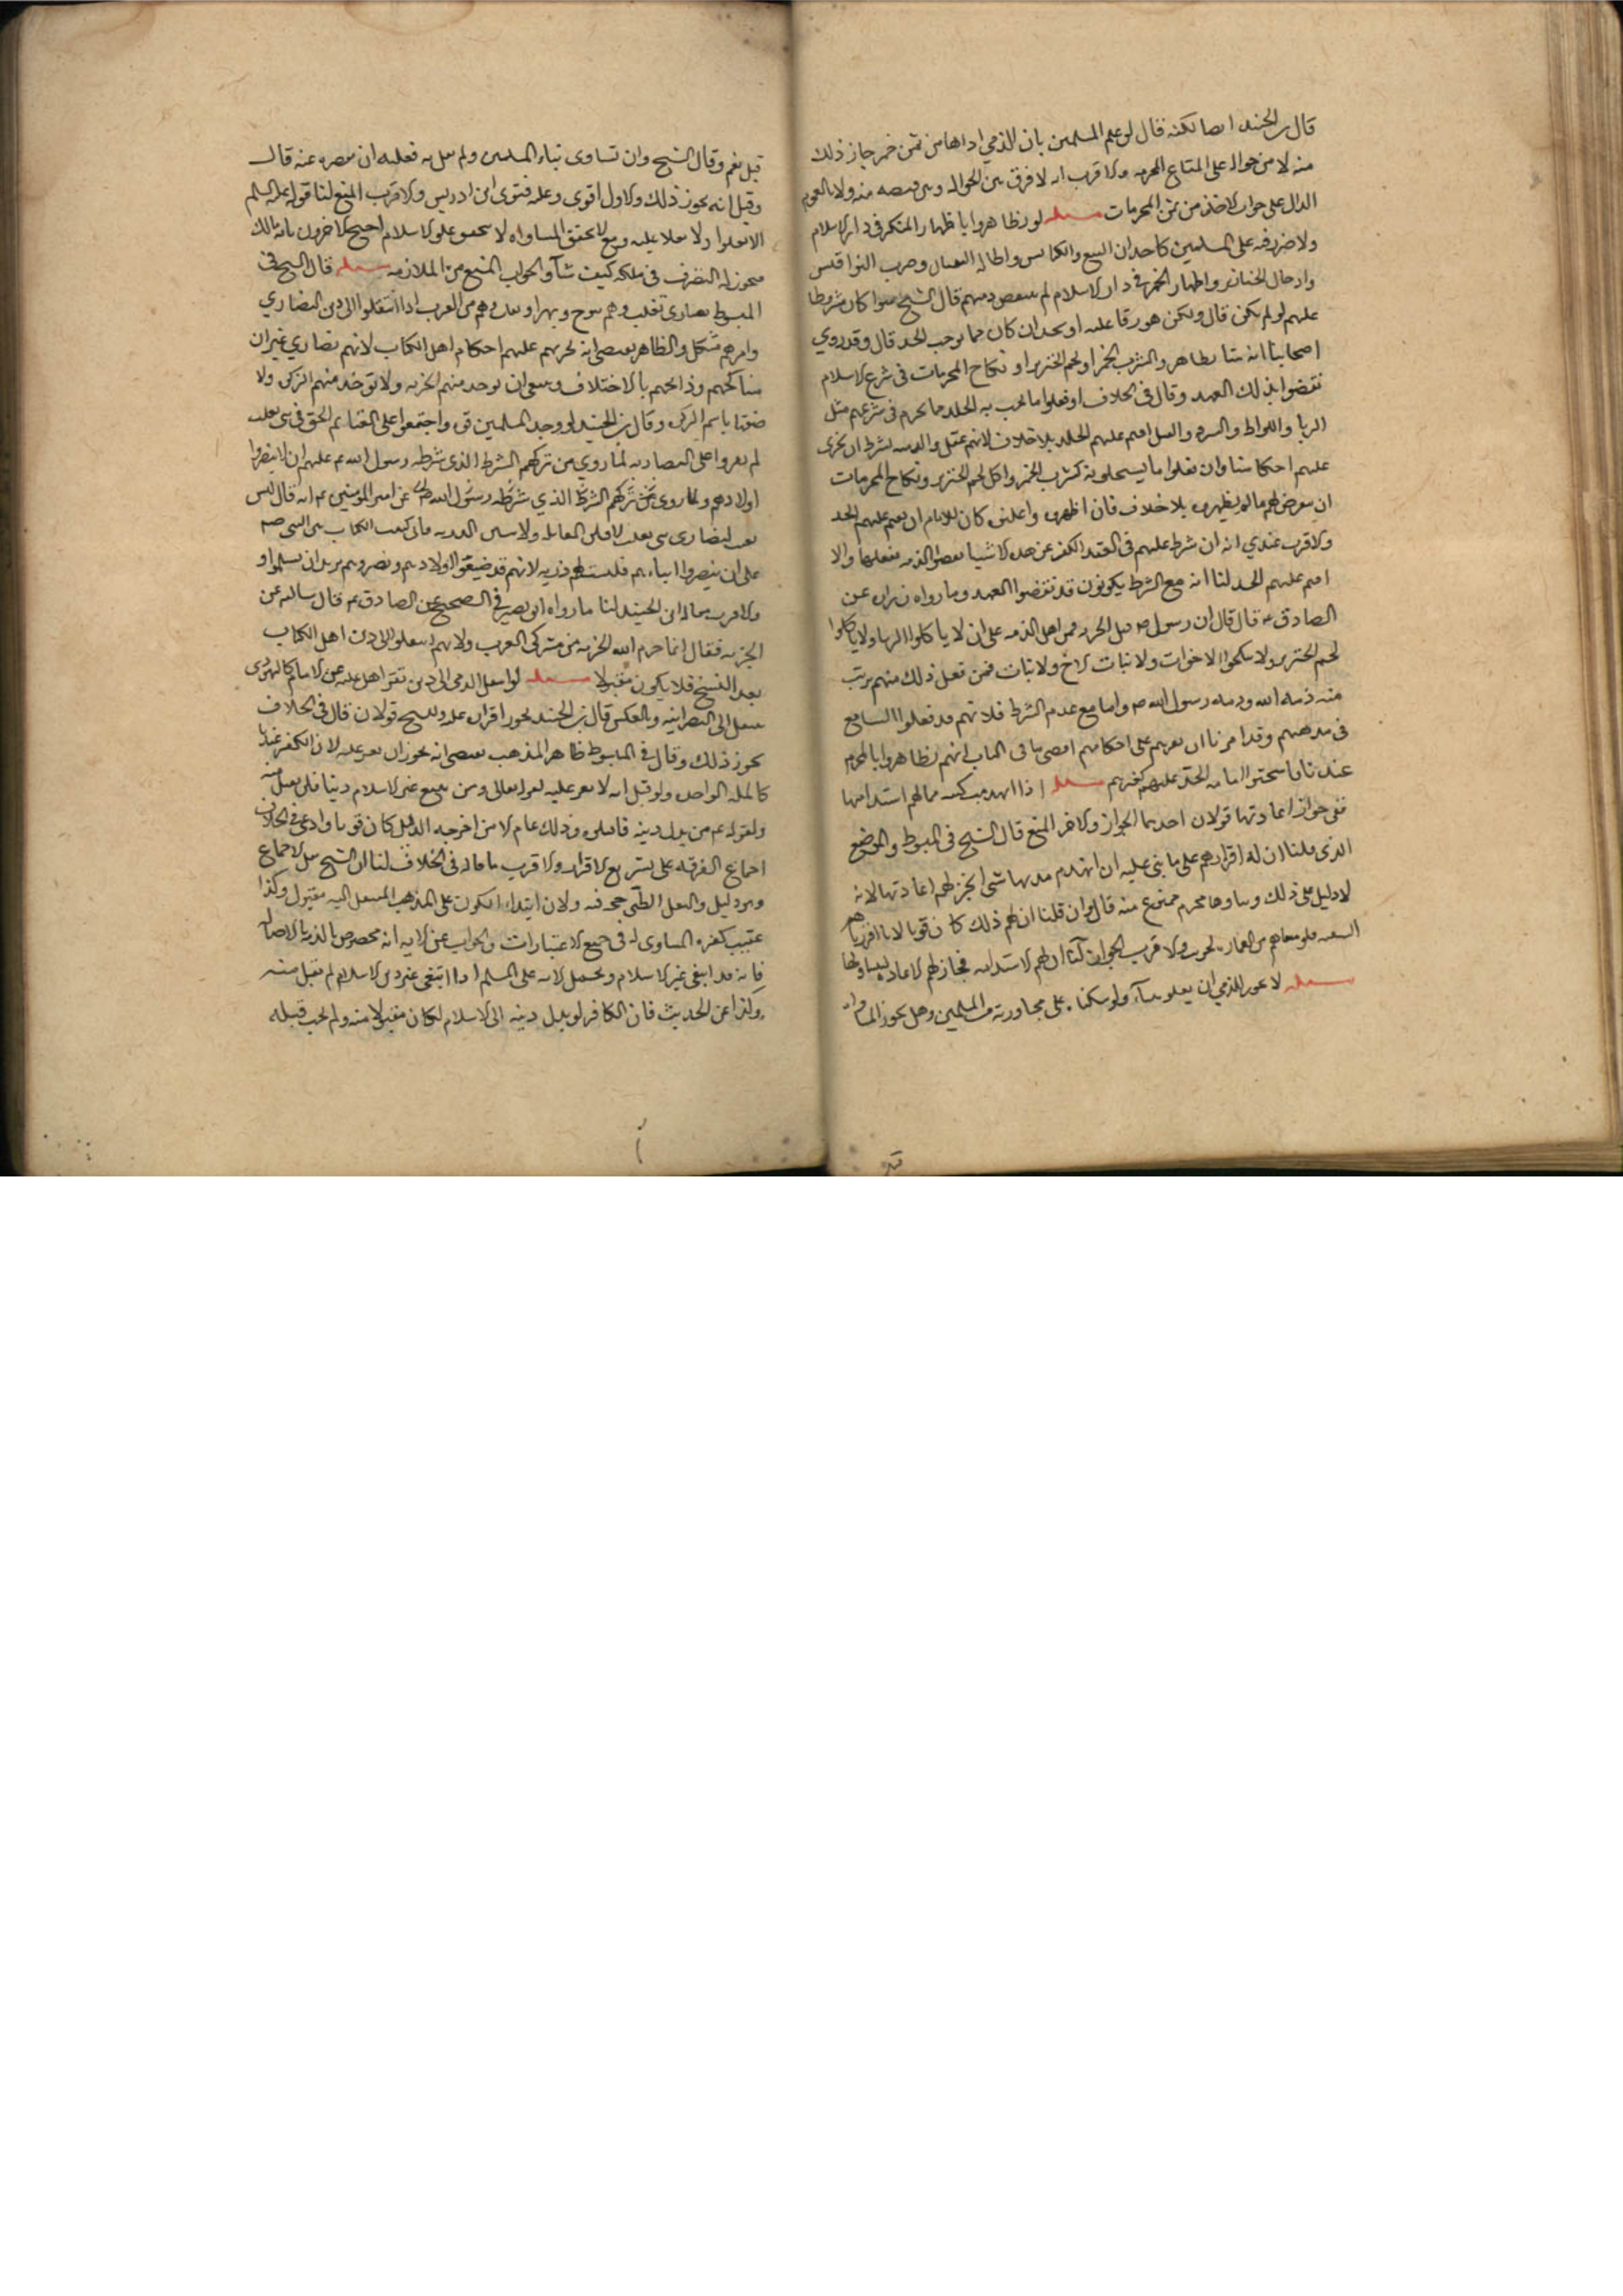 قال بن الجنيد ايضا لكنه قال لو علم المسلمين بان الذمي اداها من ثمن خمر جاز ذلك
منه لا من حواله على المتاع المحرمه والاقرب انه لا فرق بين الحواله وبين قبضه منه ولا بالعموم
الدال على جواز الاخذ من ثمن المحرمات مسله لو تظاهروا باظهار المنكر في دار الاسلام
ولا ضرر فيه على المسلمين كاحداث البيع والكنايس واطالة البنيان وضرب النواقيس
وادخال الخنازير واظهار الخمر في دار الاسلام لم ينقض ذمتهم قال الشيخ سوا كان مشروطا
عليهم او لم يكن قال ولكن عليه او يحد ان كان مما يوجب الحد قال وقد روي
اصحابنا انه متا تظاهروا بشرب الخمر او لحم الخنزير او نكاح المحرمات في شرع الاسلام
نقضوا بذلك العهد وقال في الخلاف اذا فعلوا ما يجب به الحد مما يحرم في شرعهم مثل
الزنا واللواط والسرقه والقتل اقيم عليهم الحد بلا خلاف لانهم عقدوا الذمه بشرط ان تجرى
عليهم احكامنا وان فعلوا ما يستحلونه كشرب الخمر واكل لحم الخنزير ونكاح المحرمات
ان يتعرض لهم ما لم يظهروه بلا خلاف فان اظهروه واعلنوه كان للامام ان يقيم عليهم الحد
والاقرب عندي انه ان شرط عليهم في العقد الكف عن هذه الاشيا نقضوا الذمه بفعلها والا
اقيم عليهم الحد لنا انه مع الشرط يكونون قد نقضوا العهد وما رواه زراره عن
الصادق ع قال قال ان رسول ص قبل الجزيه من اهل الذمه على ان لا ياكلوا الربا ولا ياكلوا
لحم الخنزير ولا ينكحوا الاخوات ولا بنات الاخ ولا بنات فمن فعل ذلك منهم برئت
منه ذمه الله وذمه رسول الله ص واما مع عدم الشرط فلانهم قد فعلوا السايغ
في مذهبهم وقد امرنا ان نقرهم على احكامهم اقصى ما في الباب انهم تظاهروا بالمحرم
عندنا فاستحقوا اقامه الحد عليهم كغيرهم مسله اذا انهدمت كنيسه مما لهم استدامتها
ففي جواز اعادتها قولان احدهما الجواز والاخر المنع قال الشيخ في المبسوط والموضع
الذي قلنا ان له اقرارهم على ما بني عليه ان انهدم منها شي لم يجز لهم اعادتها لانه
لا دليل على ذلك وبناوها محرم ممنوع منه قال وان قلنا ان لهم ذلك كان قويا لانا اقررناهم
البيعه فلو منعناهم من العماره لخربت والاقرب الجواز لنا ان لهم الاستدامه فجاز لهم الاعاده لتساويهما
مسله لا يجوز للذمي ان يعلو بناوه لو سكنا على مجاورته من المسلمين وهل يجوز المساواه
قيل نعم وقال الشيخ وان تساوى بناء المسلمين ولم يعل عليه فعليه ان يقصره عنه قال
وقيل انه يجوز ذلك والاول اقوى وعليه فتوى ابن ادريس والاقرب المنع لنا قوله عليه السلم
الاسلام يعلوا ولا يعلا عليه ومع تحقق المساواه لا يتحقق علو الاسلام احتج الاخرون بانه مالك
فيجوز له التصرف في ملكه كيف شآ والجواب المنع من الملازمه مسله قال الشيخ في
المبسوط نصارى تغلب وهم تنوخ وبهرا وتغلب وهم من العرب اذا انتقلوا الى دين النصارى
وامرهم مشكل والظاهر يقتضي انه تجري عليهم احكام اهل الكتاب لانهم نصارى غير ان
مناكحتهم وذبايحهم بالاختلاف وينبغي ان توخذ منهم الجزيه ولا توخذ منهم الزكوه ولا
باسم الزكوه وقال بن الجنيد لو وجد المسلمين قوه واجتمعوا على اقامه الحق في بني تغلب
لم يقروا على النصرانيه لما روي من تركهم الشرط الذي شرطه رسول الله ع عليهم ان لا ينصروا
اولادهم ولما روى من تركهم الشرط الذي شرطه رسول الله ص عن امير المومنين ع انه قال لئن
بقيت لنصارى بني تغلب لاقتلن المقاتله ولاسبين الذريه فاني كتبت الكتاب بين النبي صم
على ان لا ينصروا ابناءهم فليست لهم ذريه لانهم قد ضيعوا اولادهم ونصروهم
والاقرب مما قاله ابن الجنيد لنا ما رواه ابو بصير في الصحيح عن الصادق ع قال سالته عن
الجزيه فقال انما حرم الله الجزيه من مشركى العرب ولانهم انتقلوا الى دين اهل الكتاب
بعد النسخ فلا يكون مقبولا مسله لو انتقل الذمى الى دين تقر اهله عليه عن الاسلام كاليهودى
ينتقل الى النصرانيه وبالعكس قال بن الجنيد يجوز اقراره عليه وللشيخ قولان قال في الخلاف
يجوز ذلك وقال في المبسوط ظاهر المذهب يقتضى انه يجوز ان يقر عليه لان الكفر عندنا
كالمله الواحده ولو قيل انه لا يقر عليه لقوله تعالى ومن يبتغ غير الاسلام دينا فلن يقبل منه
ولقوله ع من بدل دينه فاقتلوه وذلك عام الا من اخرجه الدليل كان قويا وادعى في الخلاف
اجماع الفرقه على الاقرار والاقرب ما قاله في الخلاف لنا ان الشيخ نقل الاجماع
وهو دليل والنقل الظني حجه فيه ولان ابتداء الكون على المذهب المنتقل اليه مقبول وكذا
عقيب كفره المساوى له في جميع الاعتبارات والجواب عن الايه انه مخصوص بالذي بالاصاله
فانه قد ابتغى غير الاسلام ويحمل الايه على المسلم اذا ابتغى غير دين الاسلام لم يقبل منه
وكذا عن الحديث فان الكافر لو بدل دينه الى الاسلام لكان مقبولا منه ولم يجب قتله